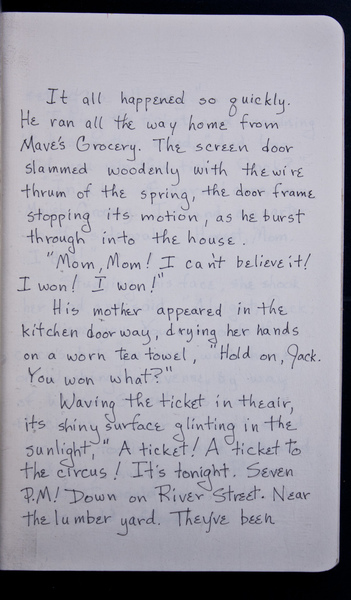 It all happened so quickly.
He ran all the way home from
Mave's Grocery. The screen door
slammed woodenly with the wire
thrum of the spring, the door frame
stopping its motion, as he burst
through into the house.
"Mom, Mom! I can't believe it!
I won! I won!"
His mother appeared in the
kitchen doorway, drying her hands
on a worn tea towel, "Hold on, Jack.
You won what?"
Waving the ticket in the air,
its shiny surface glinting in the
sunlight, "A ticket! A ticket to
the circus! It's tonight. Seven
P.M! Down on River Street. Near
the lumber yard. They've been